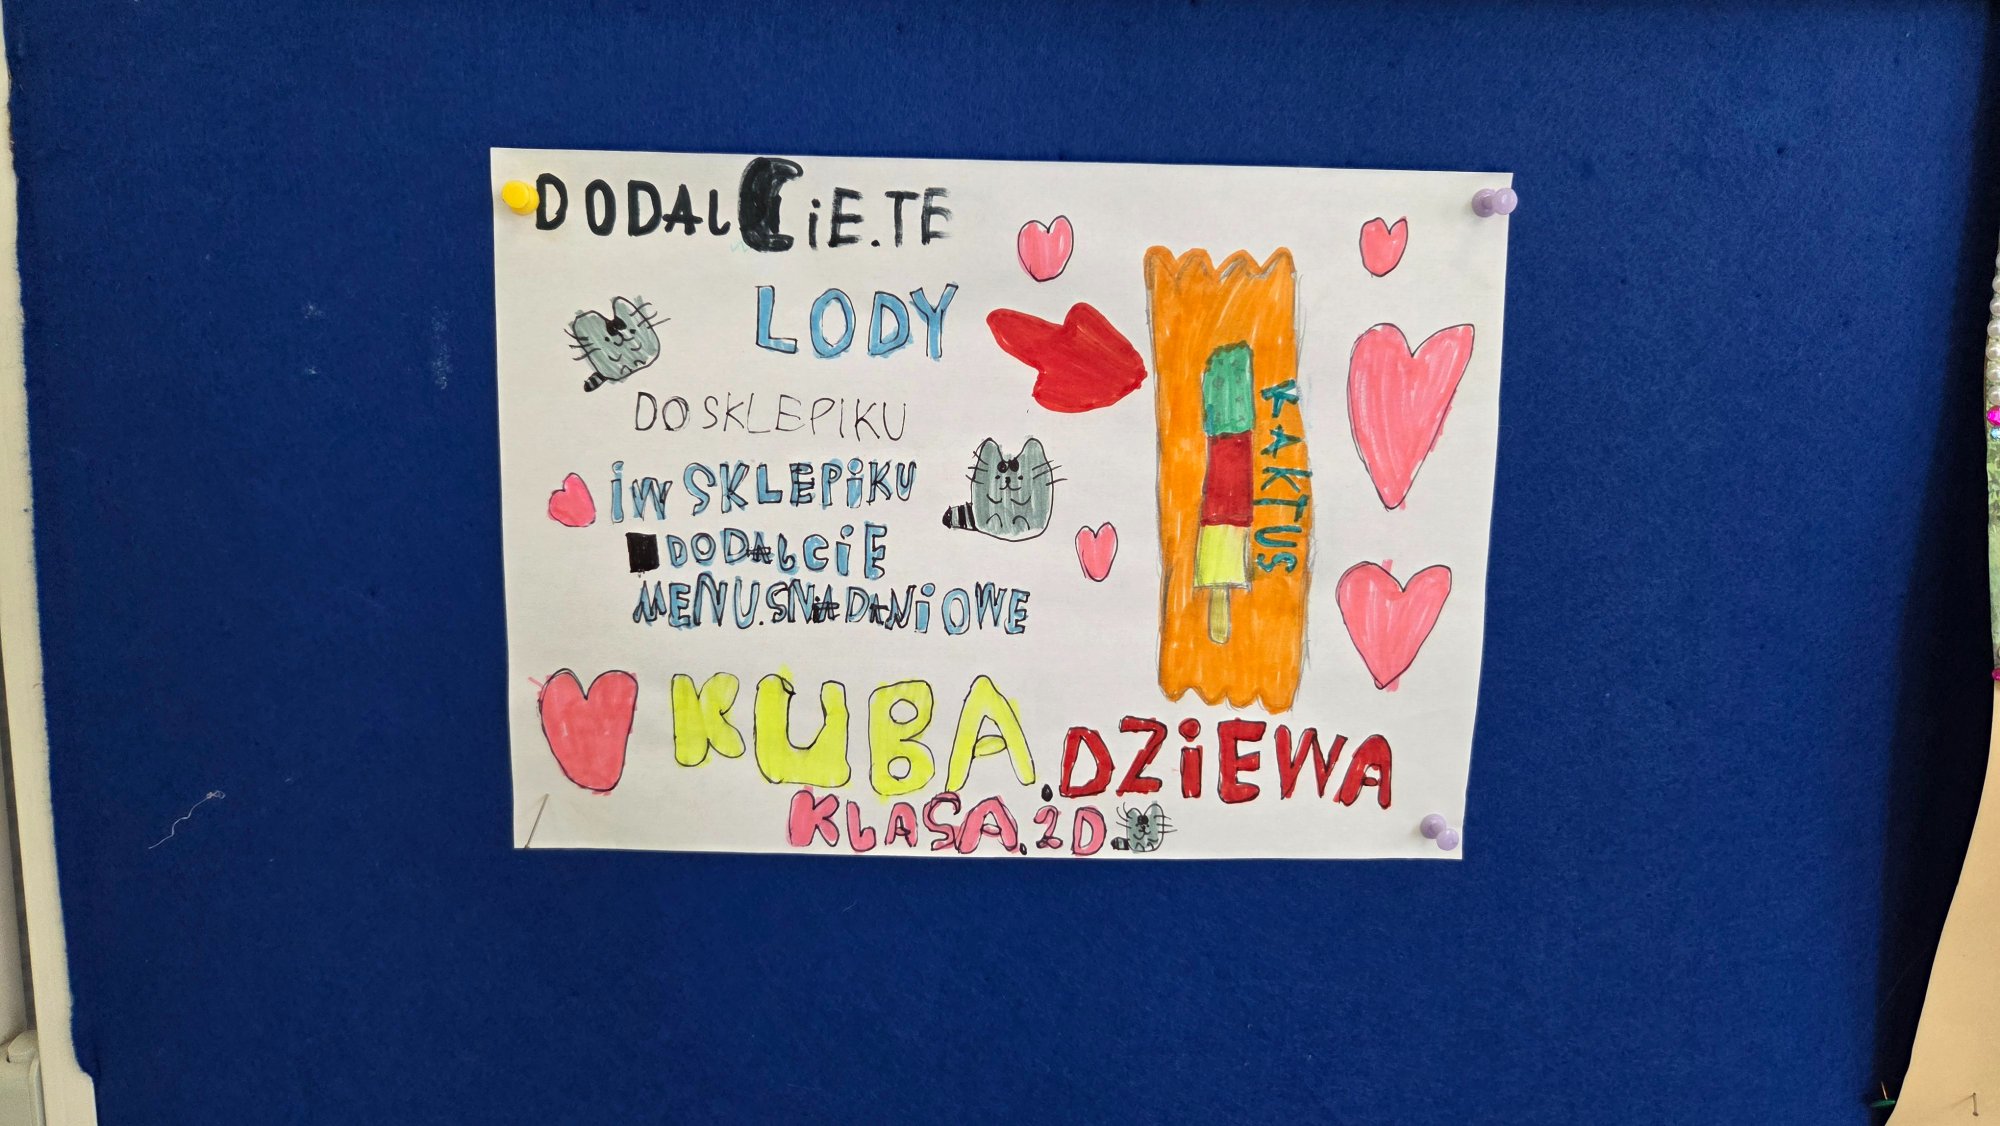 DODALCiE.TE
LODY
DO SKLEPIKU
iW SKLEPiKU
DODALCiE
MENU.SNiADANiOWE
KAKTUS
KUBA.DZiEWA
KLASA.2D